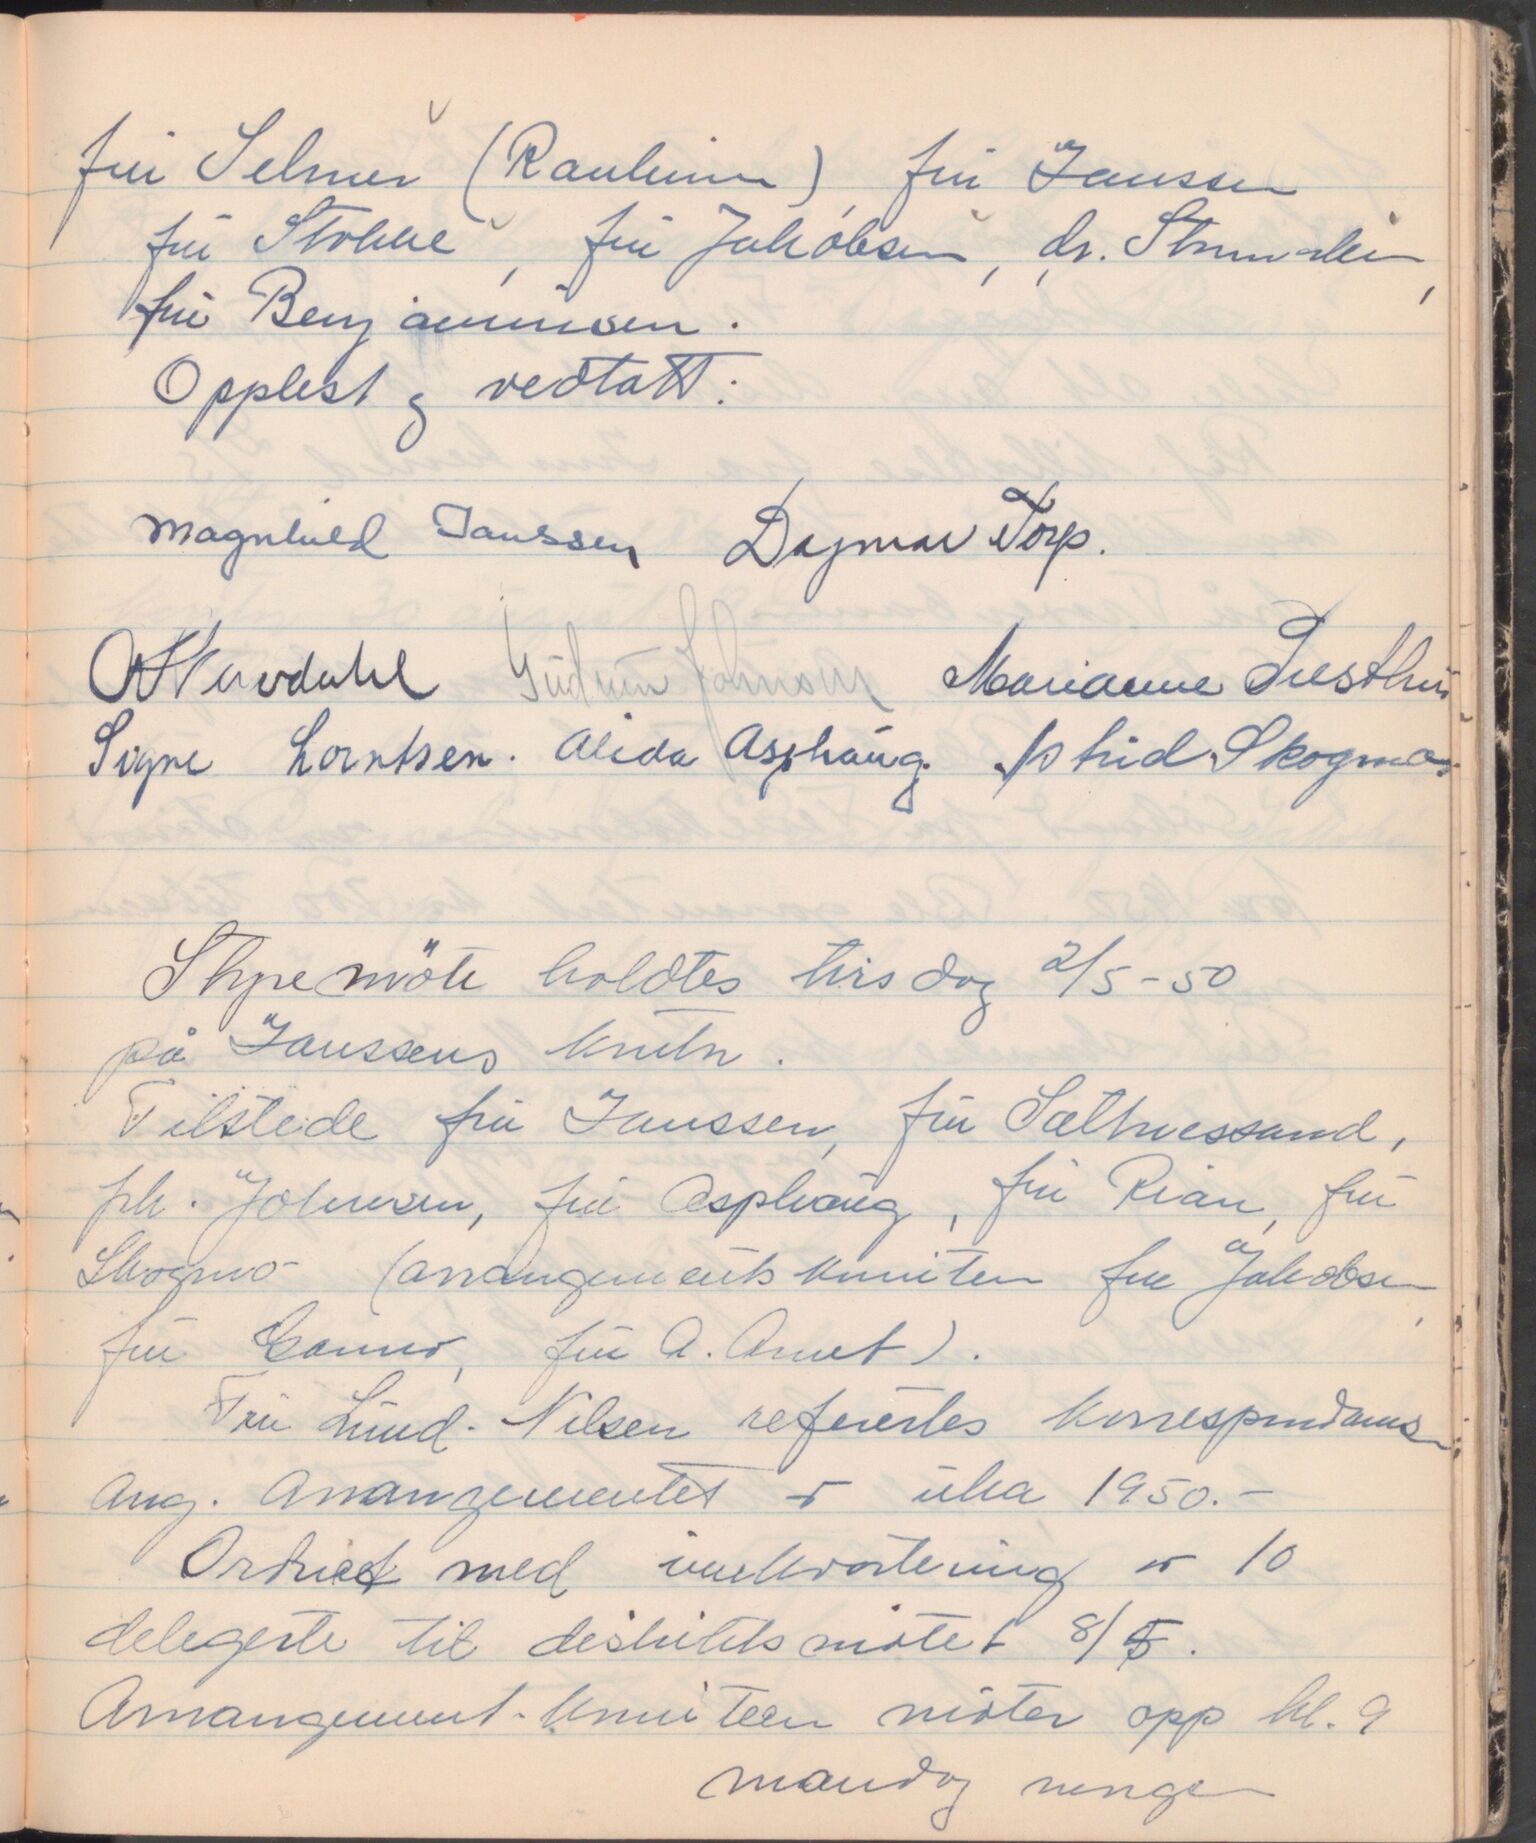 fru Selmer (Rauheim), fru Janssen
fru Stokke, fru Jakobsen, dr. Strømdli,
fru Benjaminsen.
Opplest og vedtatt.
Magnhild Janssen Dagmar Torp.
Gudrun Johnsen Marianne Presthus
Signe Lorntsen. Alida Asphaug. Astrid Skogmo.
Styremöte holdtes tirsdag 2/5-50
på Janssens kontor.
Tilstede fru Janssen, fru Sæthressand,
frk. Johnsen, fru Asphaug, fru Rian, fru
Skogmo (arrangementskomiteen fru Jakobsen,
fru Ganmo, fru A. Arnet).
Fru Lund-Nilsen referertes korrespondansen
ang. arrangementet av uka 1950.-
Ordnet med innkvartering av 10
delegerte til distriktsmötet 8/5.
Arrangement-komiteen möter opp kl. 9
mandag